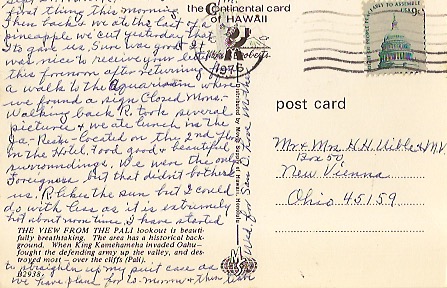 first thing this morning.
Then back we ate the last of a
pineapple we cut yesterday that
gave us. Sun was good. It
was nice to receive your letter
this forenoon after returning
a walk to the Aquarium when
we found a sign Closed Mon.
Walking back R. took several
pictures & we ate lunch in the
located on the 2nd fl.
in the Hotel. Food good & beautiful
surroundings. We were the only
Foreigners but that didn't bother
us. R likes the sun but I could
do with less as it is extremely
hot about noon time. I have started
THE VIEW FROM THE PALI lookout is beauti-
fully breathtaking. The area has a historical back-
ground. When King Kamehameha invaded Oahu—
fought the defending army up the valley, and des-
troyed most — over the cliffs (Pali).
to straighten up my suit case as
B2938
we have plans for to-morrow & then leave
Wed. for San D. Love Mother
the Continental card
of HAWAII
Mike Roberts
1976
USA 9c
post card
Mr & Mrs. H. H. Uible & M.V.
Box 50,
New Vienna
Ohio 45159